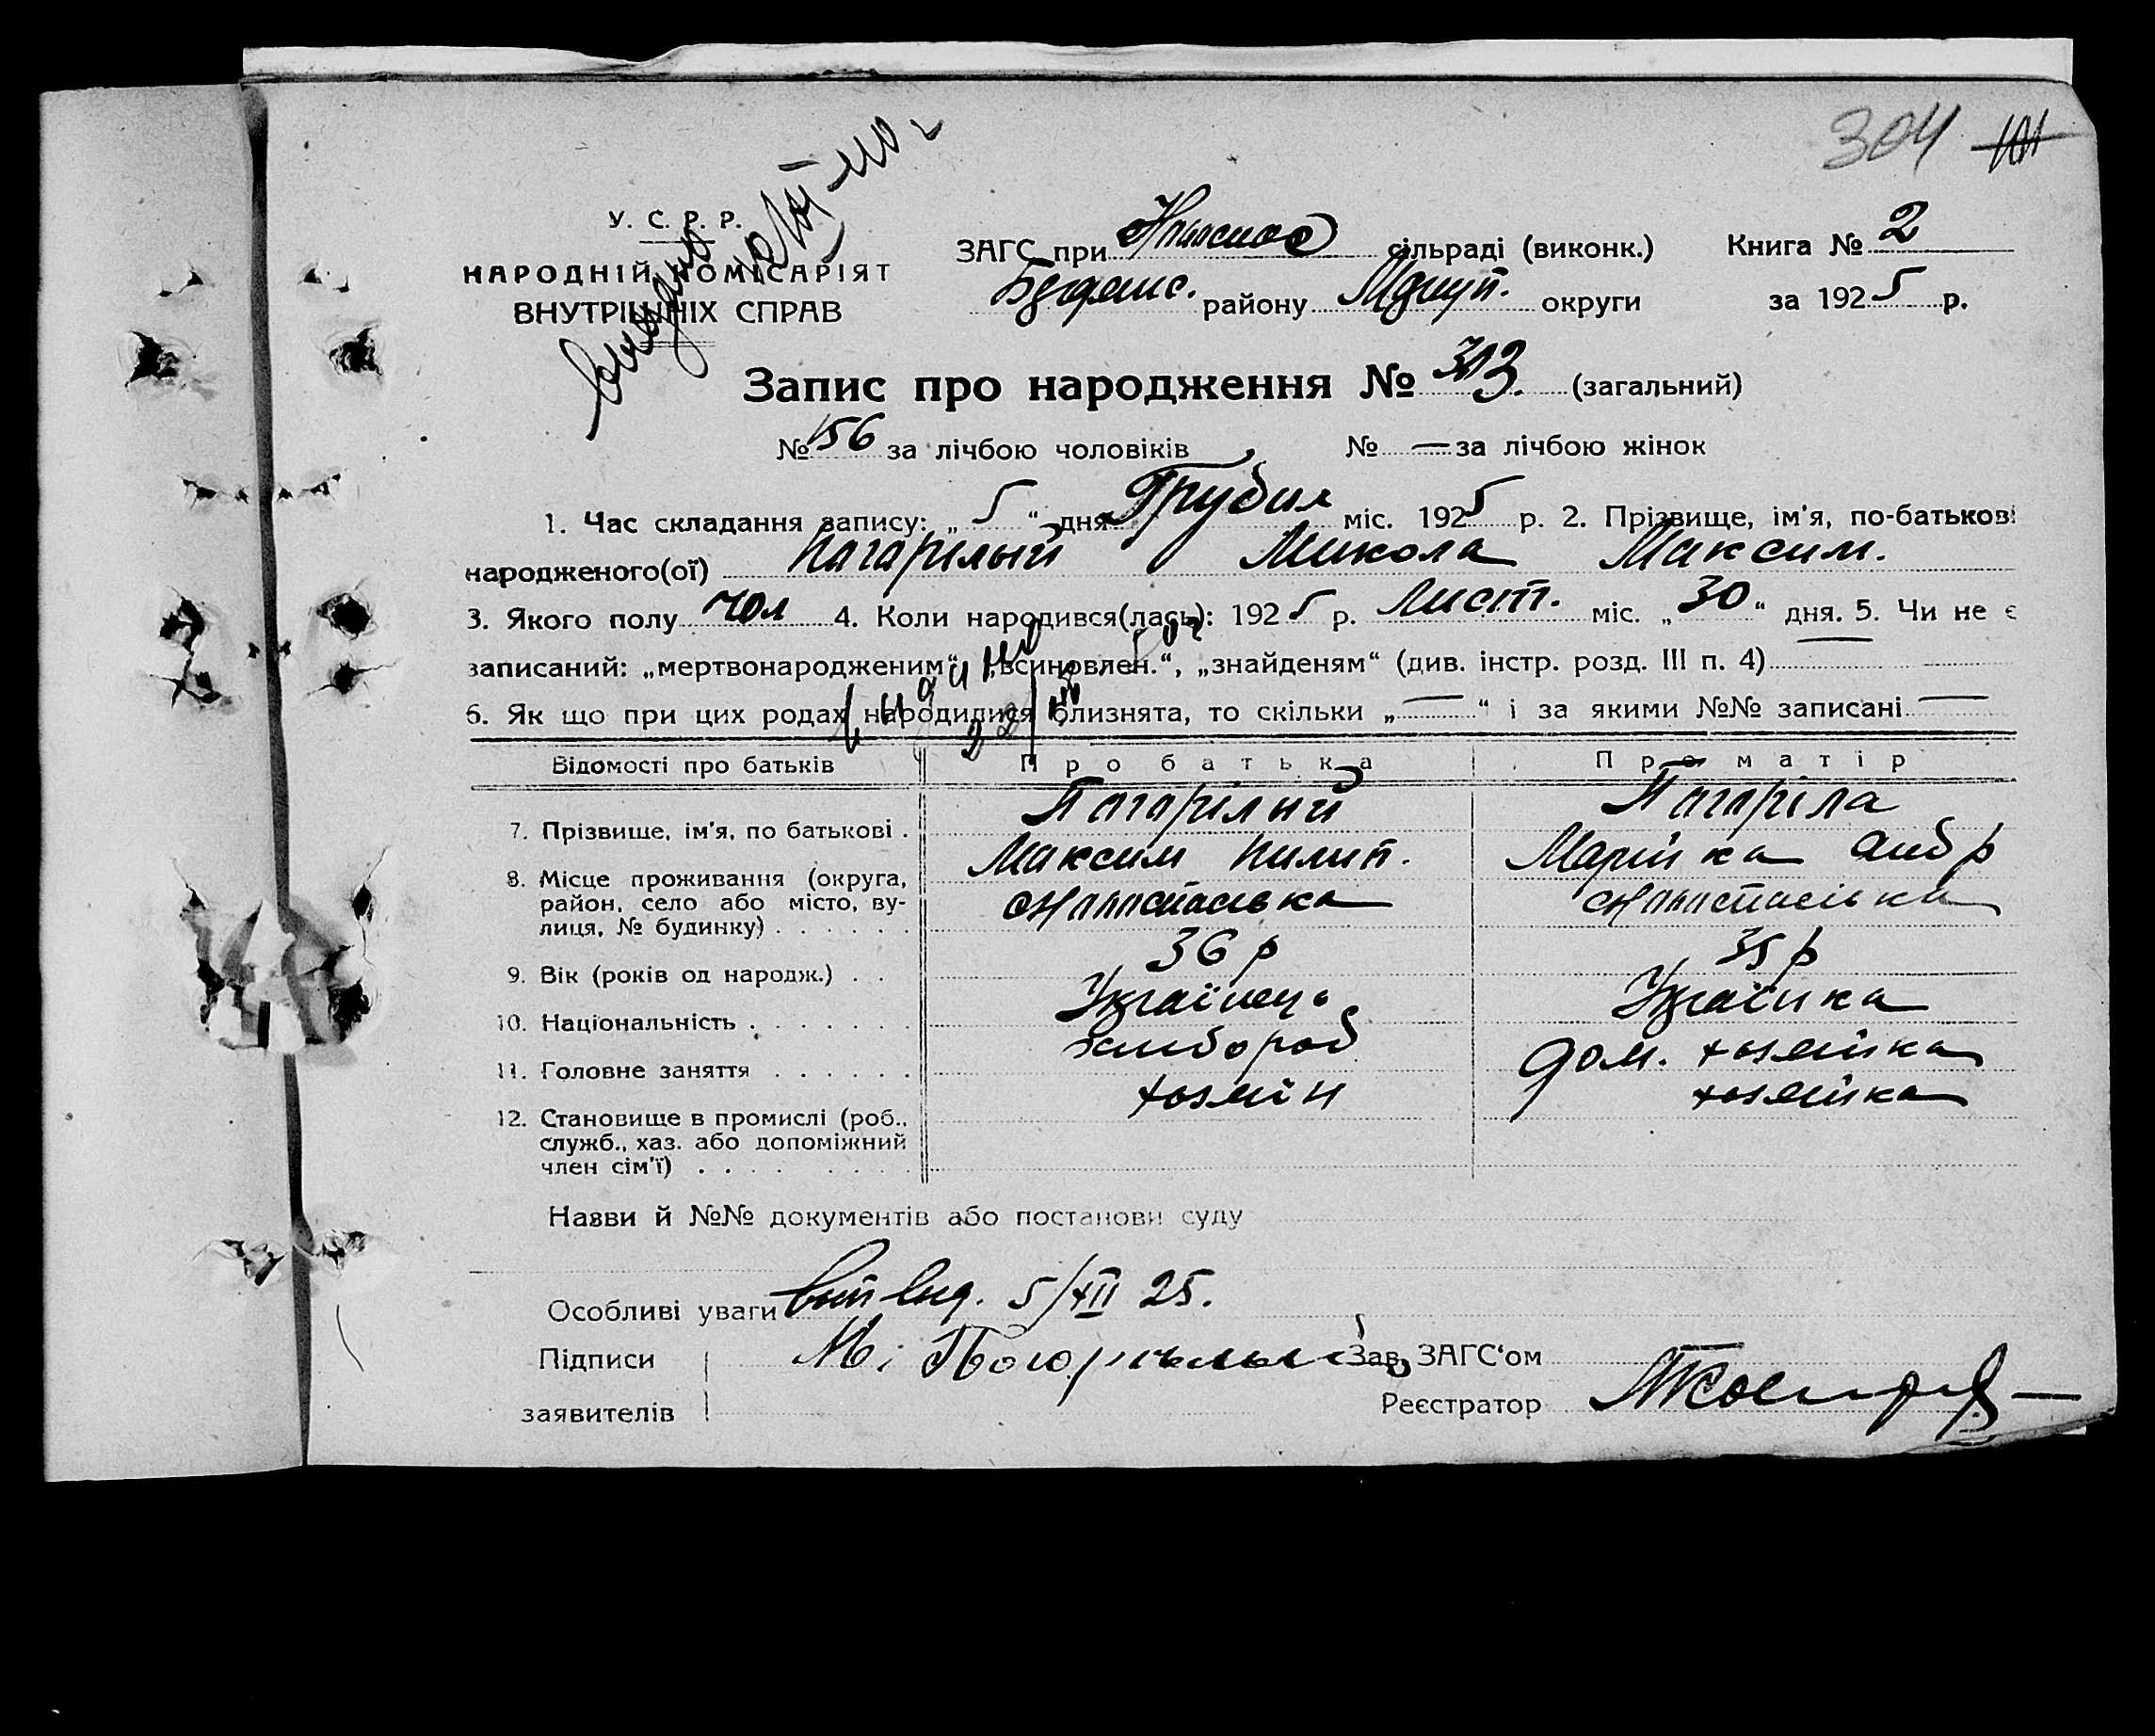 304
У. С. Р. Р.
НАРОДНІЙ КОМІСАРІЯТ
ВНУТРІШНІХ СПРАВ
ЗАГС при сільраді (виконк.) Книга № 2
району округи за 1925 р.
Запис про народження № 313. (загальний)
№ 156 за лічбою чоловіків № — за лічбою жінок
1. Час складання запису: „5“ дня Грудня міс. 1925 р. 2. Прізвище, ім'я, по-батькові
народженого(ої) Пагарілый Микола Максим.
3. Якого полу чол 4. Коли народився(лась): 1925 р. Лист. міс. „30“ дня. 5. Чи не є
записаний: „мертвонародженим“, „всиновлен.“, „знайденям“ (див. інстр. розд. III п. 4) —
6. Як що при цих родах народилися близнята, то скільки „—“ і за якими №№ записані —
Відомості про батьків Про батька Про матір
7. Прізвище, ім'я, по батькові . Пагарілий Максим Пилип. Пагаріла Марійка Андр
8. Місце проживання (округа,
район, село або місто, ву-
лиця, № будинку) . . . . . .
9. Вік (років од народж.) . . 36 р 35 р
10. Національність . . . . . . . Українець Українка
11. Головне заняття . . . . . . хлібороб дом. хазяйка
12. Становище в промислі (роб.,
служб., хаз. або допоміжний
член сім'ї) . . . . . . . . хазяїн хазяйка
Назви й №№ документів або постанови суду
Особливі уваги вит вид. 5/XII 25.
Підписи Зав. ЗАГС'ом
заявителів Реєстратор